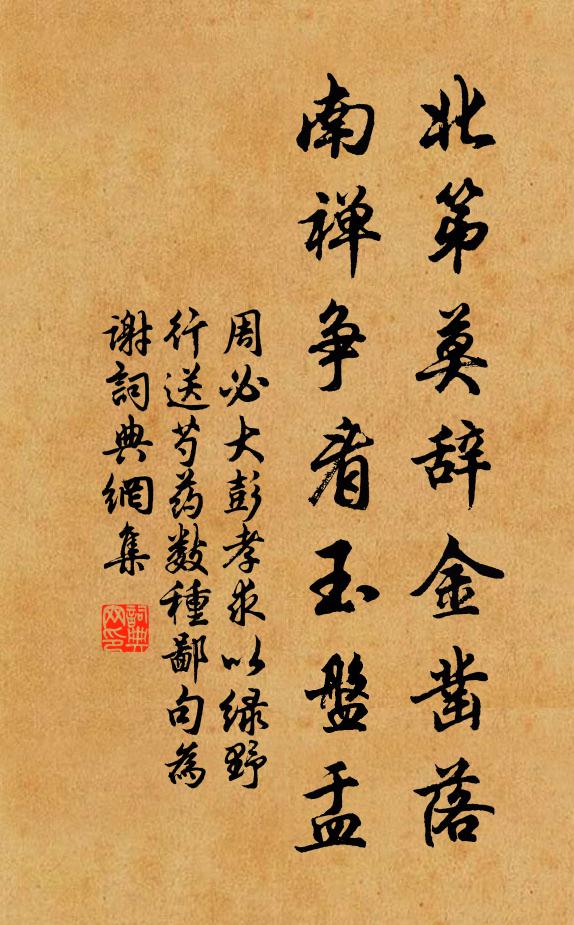 北第莫辞金凿落
南禅争看玉盘盂
周必大彭孝求以绿野
行送芍药数種鄙句為
谢詞典網集
詞典网印